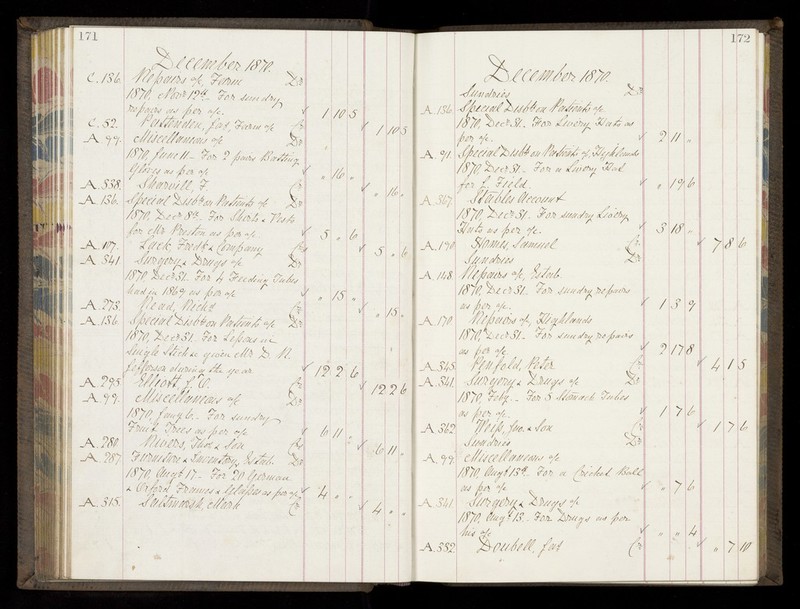 171
December 1870.
C. 136. Repairs a/c Farm Dr
1870. Novr 12th For sundry
repairs as per a/c. ✓ 1 10 5
C. 52. Pattenden, Jas, Farm a/c Cr ✓ 1 10 5
A. 99. Miscellaneous a/c Dr
1870, June 11 - For 2 pairs Batting
Gloves as per a/c ✓ " 16 "
A. 338. Sharvill, F. Cr ✓ " 16 "
A. 136. Special Disbts on Patients a/c Dr
1870. Decr 8th. For Shirts & Vests
for Mr Preston as per a/c ✓ 5 " 6
A. 107. Lack Fredk & Company Cr ✓ 5 " 6
A. 341 Surgery & Drugs a/c Dr
1870 Decr 31. For 4 Feeding Tubes
had in 1869 as per a/c ✓ " 15 "
A. 273. Read, Richd Cr ✓ " 15 "
A. 136. Special Disbts on Patients a/c Dr
1870, Decr 31. For Lessons in
Single Stick &c given Mr D. N.
Jefferson during the year ✓ 12 2 6
A. 295. Elliott, J. C. Cr ✓ 12 2 6
A. 99. Miscellaneous a/c Dr
1870, Jany 6. For sundry
Fruit Trees as per a/c ✓ 6 11 "
A. 280. Rivers, Thos & Son Cr ✓ 6 11 "
A. 287 Furniture & Inventory, Estab. Dr
1870, Augt 17 - For 20 German
& Oxford Frames & Glasses as per a/c ✓ 4 " "
A. 315. Saltmarsh, Mark Cr ✓ 4 " "
172
December 1870.
Sundries Dr
A. 136. Special Disbts on Patients a/c
1870, Decr 31. For Livery Hats as
per a/c. ✓ 2 11 "
A. 91. Special Disbts on Patients a/c, Highlands
1870 Decr 31 - For a Livery Hat
for L. Field. ✓ " 19 6
A. 367. Stables Account
1870, Decr 31. For sundry Livery
Hats as per a/c. ✓ 3 18 "
A. 190 Hames, Samuel Cr ✓ 7 8 6
Sundries Dr
A. 148. Repairs a/c, Estab.
1870, Decr 31. For sundry repairs
as per a/c. ✓ 1 3 9
A. 170 Repairs a/c Highlands
1870, Decr 31 - For sundry repairs
as per a/c ✓ 2 17 8
A. 345. Penfold, Peter Cr ✓ 4 1 5
A. 341. Surgery & Drugs a/c Dr
1870, Feby. - For 3 Stomach Tubes
as per a/c. ✓ 1 7 6
A. 362 Weiss, Jno. & Son Cr ✓ 1 7 6
Sundries Dr
A. 99 Miscellaneous a/c
1870 Augt 13th. For a Cricket Ball
as per a/c ✓ " 7 6
A. 341. Surgery & Drugs a/c
1870, Augt 13. - For Drugs as per
his a/c ✓ " " 4
A. 332. Doubell, Jas Cr ✓ " 7 10